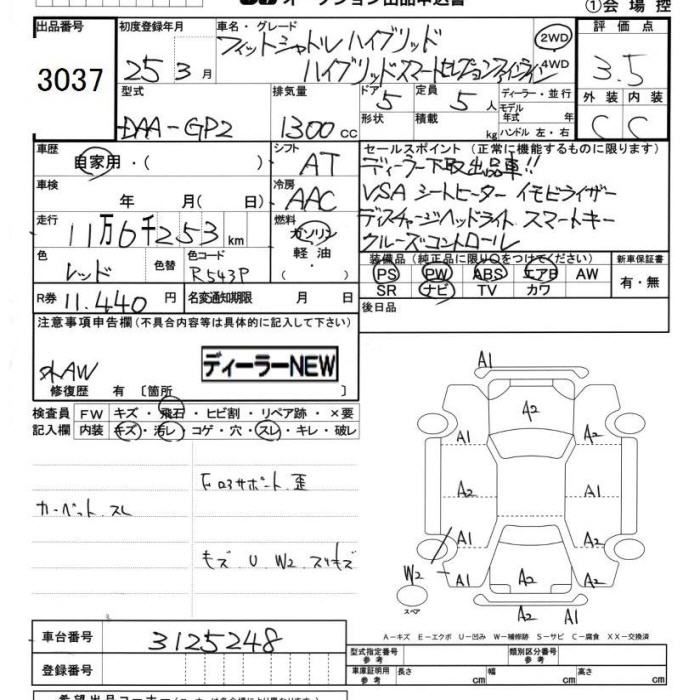 オークション出品申込書
①会場控
出品番号
3037
初度登録年月
25 3月
車名・グレード
フィットシャトル ハイブリッド
ハイブリッドスマートセレクションファインライン
2WD
4WD
評価点
3.5
外装 内装
C C
型式
DAA-GP2
排気量
1300cc
ドア 5
定員 5人
ディーラー・並行
モデル年式 年
形状
積載 kg
ハンドル 左・右
車歴
自家用・(
シフト
AT
セールスポイント (正常に機能するものに限ります)
ディーラー下取出品車!!
VSA シートヒーター イモビライザー
ディスチャージヘッドライト スマートキー
クルーズコントロール
車検
年 月( 日)
冷房
AAC
走行
11万6千253km
燃料
ガソリン
軽油
色
レッド
色替
色コード
R543P
( )
装備品 (純正品に限り○をつけてください)
PS PW ABS エアB AW
SR ナビ TV カワ
新車保証書
有・無
R券 11.440円
名変通知期限 月 日
後日品
注意事項申告欄(不具合内容等は具体的に記入して下さい)
外AW
ディーラーNEW
修復歴 有 〔箇所 〕
検査員
記入欄
FW キズ・飛石・ヒビ割・リペア跡・×要
内装 キズ・汚レ・コゲ・穴・スレ・キレ・破レ
カーペット スレ
F ロアサポート 歪
キズ U W2 スリキズ
A1
A2
A1 A2
A2 A1
A1 A1
W2
A1 A2 A2
A2 A1
スペア
A-キズ E-エクボ U-凹み W-補修跡 S-サビ C-腐食 XX-交換済
車台番号
3125248
登録番号
型式指定番号
参考
類別区分番号
参考
車庫証明用
参考
長さ cm
幅 cm
高さ cm